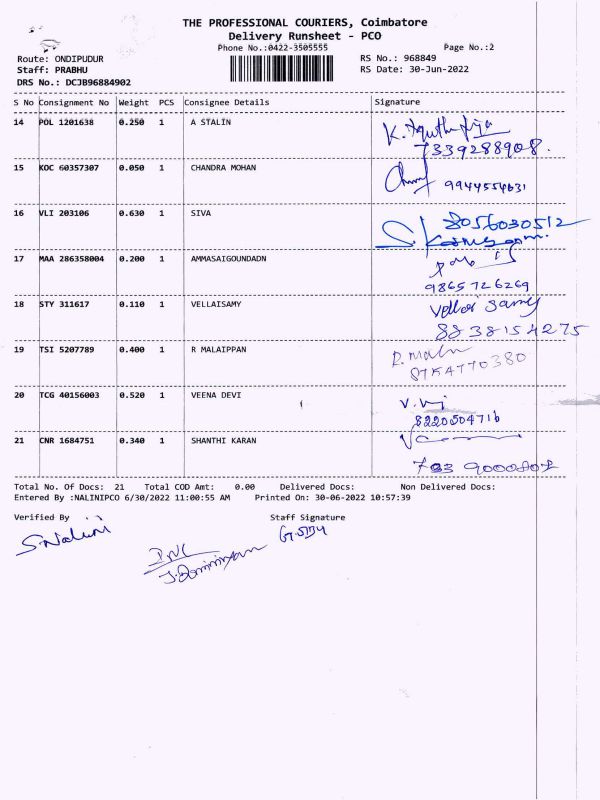 THE PROFESSIONAL COURIERS, Coimbatore
Delivery Runsheet - PCO
Phone No.:0422-3505555 Page No.:2
Route: ONDIPUDUR RS No.: 968849
Staff: PRABHU RS Date: 30-Jun-2022
DRS No.: DCJB96884902
S No Consignment No Weight PCS Consignee Details Signature
14 POL 1201638 0.250 1 A STALIN
7339288908.
15 KOC 60357307 0.050 1 CHANDRA MOHAN
9944554631
16 VLI 203106 0.630 1 SIVA 8056030512
17 MAA 286358004 0.200 1 AMMASAIGOUNDADN
9865726269
18 STY 311617 0.110 1 VELLAISAMY Vellai Samy
8838154275
19 TSI 5207789 0.400 1 R MALAIPPAN
8754770380
20 TCG 40156003 0.520 1 VEENA DEVI
8220504716
21 CNR 1684751 0.340 1 SHANTHI KARAN
Total No. Of Docs: 21 Total COD Amt: 0.00 Delivered Docs: Non Delivered Docs:
Entered By :NALINIPCO 6/30/2022 11:00:55 AM Printed On: 30-06-2022 10:57:39
Verified By Staff Signature
S.Nalini